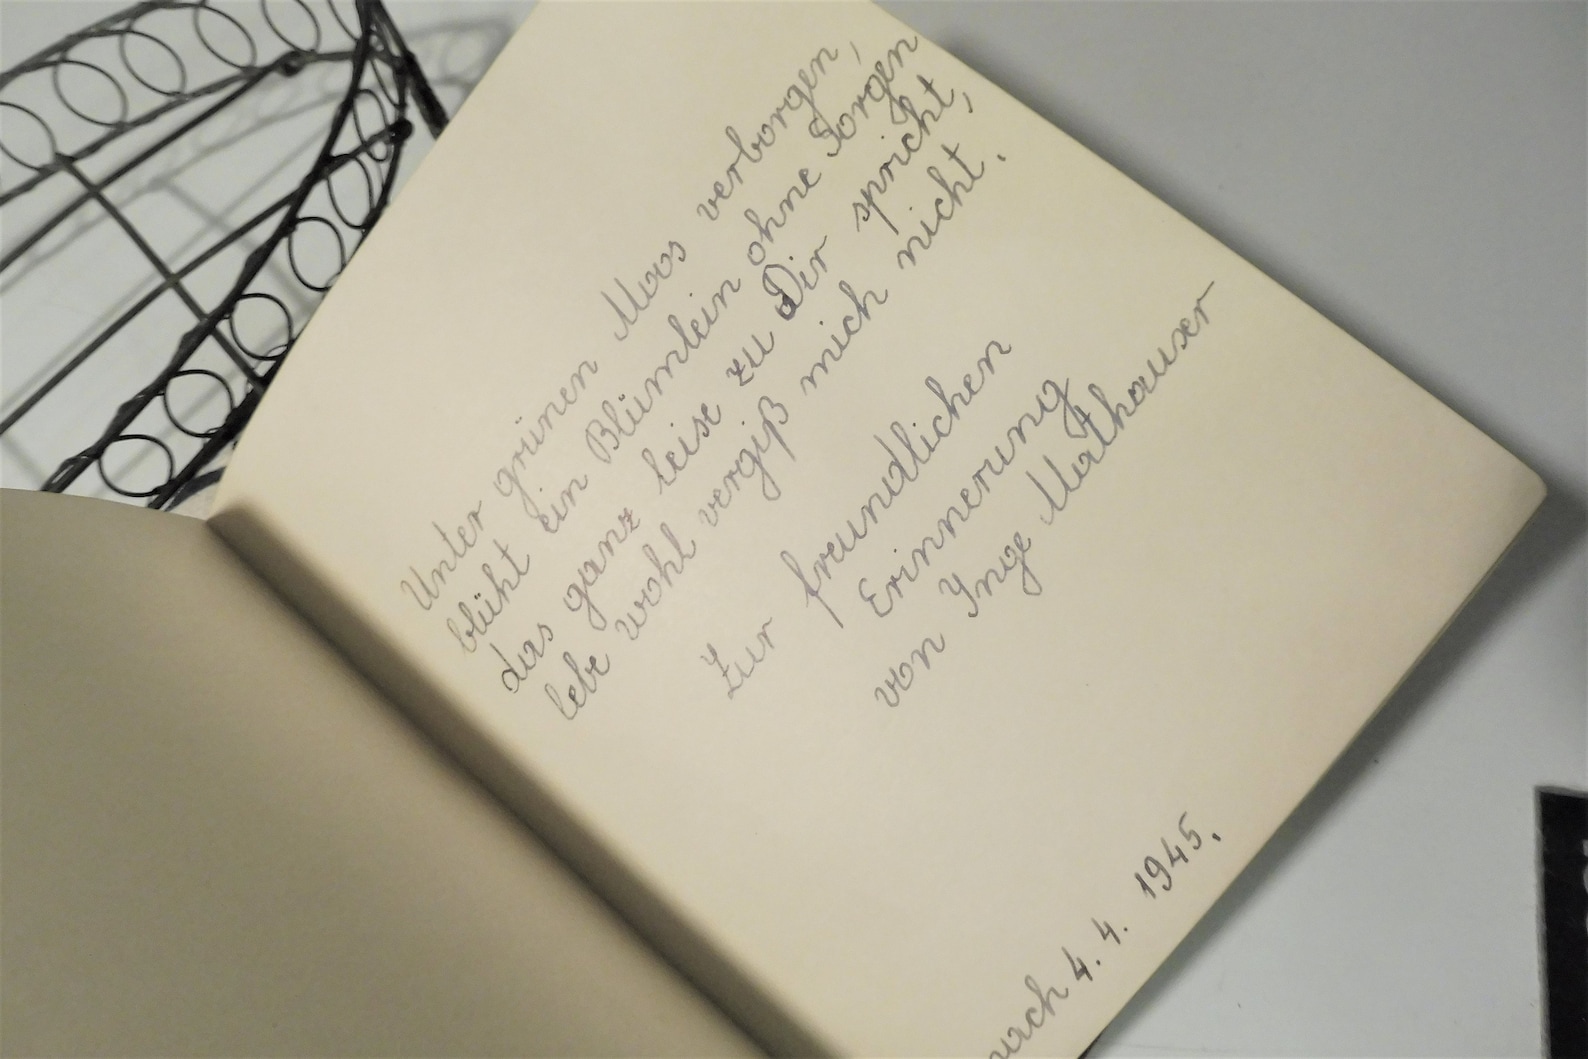 Unter grünen Moos verborgen,
blüht ein Blümlein ohne Sorgen
das ganz leise zu Dir spricht,
lebe wohl vergiß mich nicht.
Zur freundlichen
Erinnerung
von Inge Mathauser
4. 4. 1945.